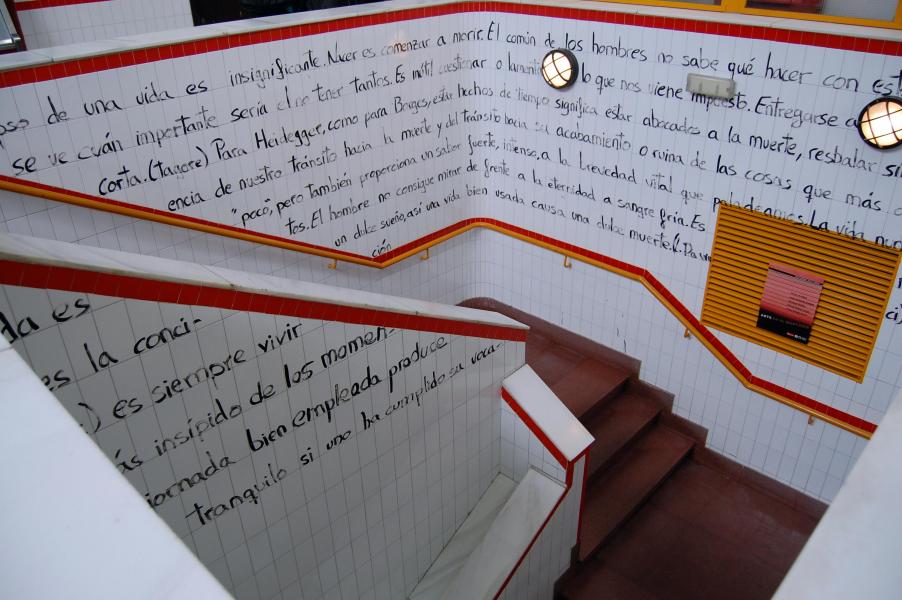 oso de una vida es insignificante. Nacer es comenzar a morir. El común de los hombres no sabe qué hacer con est
se ve cuán importante sería el no tener tantos. Es inútil cuestionar o lamentar lo que nos viene impuesto. Entregarse a
corta. (Tagore) Para Heidegger, como para Borges, estar hechos de tiempo significa estar abocados a la muerte, resbalar sin
encia de nuestro tránsito hacia la muerte y del tránsito hacia su acabamiento o ruina de las cosas que más
"poco", pero también proporciona un sabor fuerte, intenso, a la brevedad vital que paladeamos. La vida nun
tos. El hombre no consigue mirar de frente a la eternidad a sangre fría. Es
un dulce sueño, así una vida bien usada causa una dulce muerte. (
ción
da es
es la conci-
) es siempre vivir
ás insípido de los momen-
jornada bien empleada produce
tranquilo si uno ha cumplido su voca-